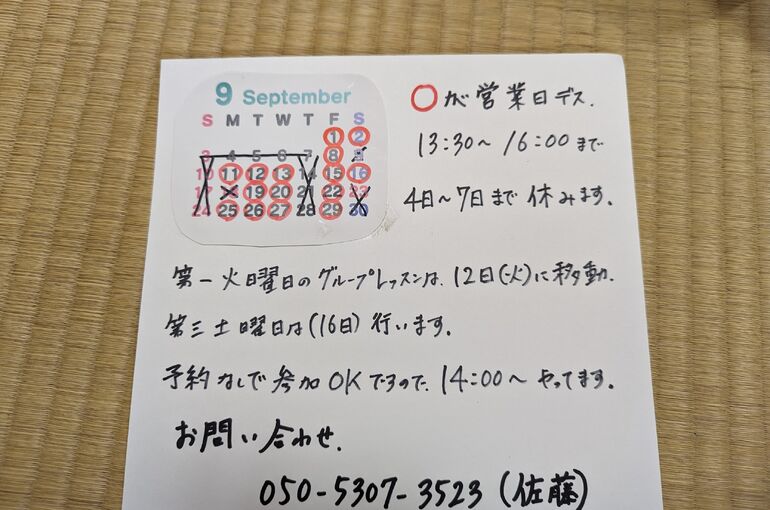 9 September
S M T W T F S
1 2
3 4 5 6 7 8 9
10 11 12 13 14 15 16
17 18 19 20 21 22 23
24 25 26 27 28 29 30
○が営業日デス.
13:30～16:00まで
4日～7日まで休みます.
第一火曜日のグループレッスンは、12日(火)に移動.
第三土曜日は(16日)行います.
予約なしで参加OKですので、14:00～やってます.
お問い合わせ.
050-5307-3523(佐藤)